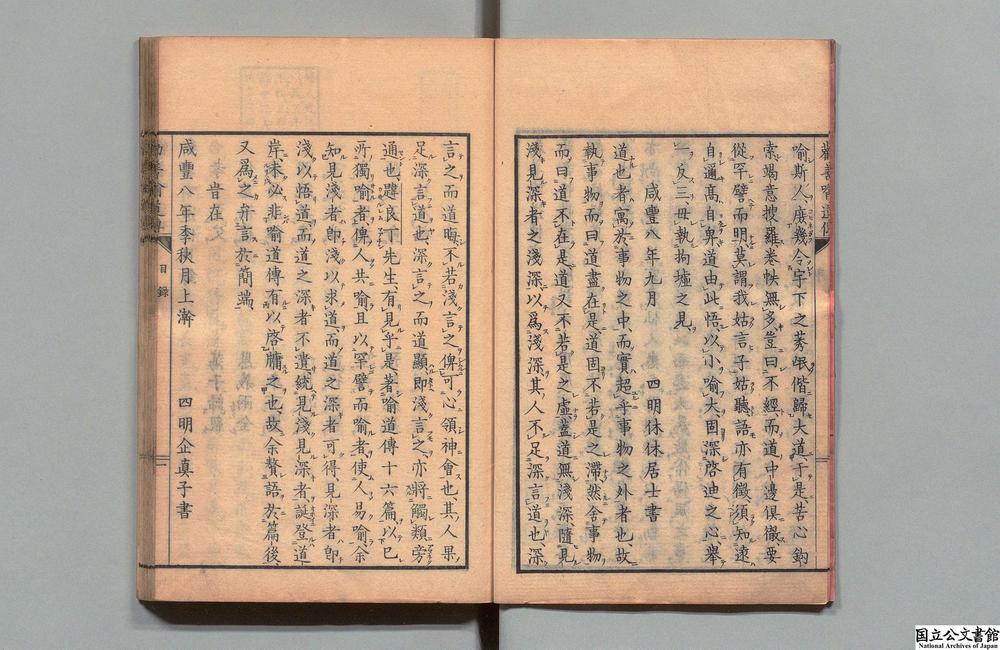 勸善喻道傳
喻斯人庶幾令宇下之莠氓偕歸大道于是苦心鉤
索竭意搜羅卷帙無多豈曰不經而道中邊俱徹要
從罕譬而明莫謂我姑言子姑聽語亦有徵須知遠
自邇高自卑道由此悟以小喻大固深啓迪之心舉
一反三毋執拘墟之見
咸豐八年九月　四明休休居士書
道也者寓於事物之中而實超乎事物之外者也故
執事物而曰道盡在是道固不若是之滯然舍事物
而曰道不在是道又不若是之虛蓋道無淺深隨見
淺見深者之淺深以爲淺深其人不足深言道也深
言之而道晦不若淺言之俾可心領神會也其人果
足深言道也深言之而道顯即淺言之亦將觸類旁
通也韙良丁先生有見乎是著喻道傳十六篇以己
所獨喻者俾人共喻且以罕譬而喻者使人易喻余
知見淺者卽淺以求道而道之深者可得見深者卽
淺以悟道而道之深者不遺統見淺見深者誕登道
岸未必非喻道傳有以啓牖之也故余贅語於篇後
又爲之弁言於簡端
咸豐八年季秋月上澣　四明企真子書
目錄
一
国立公文書館
National Archives of Japan